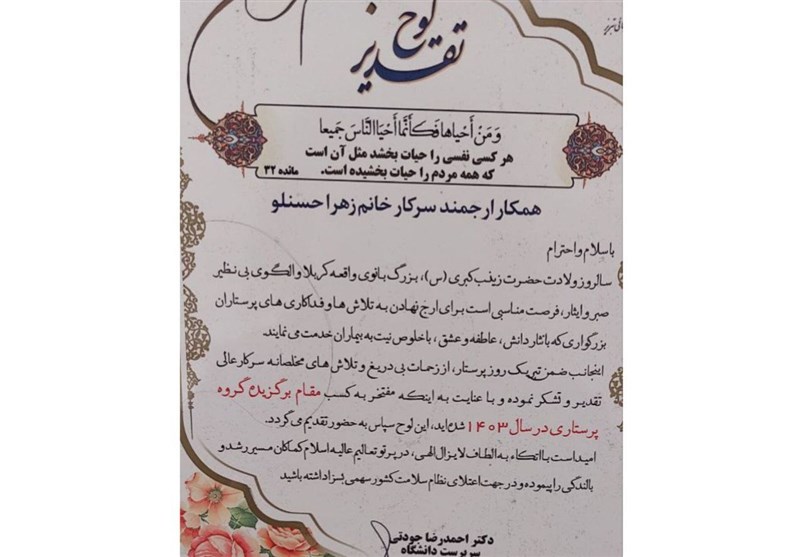 لوح
تقدیر
وَمَنْ أَحْیاها فَکَأَنَّما أَحْیَا النّاسَ جَمیعا
هر کسی نفسی را حیات بخشد مثل آن است
که همه مردم را حیات بخشیده است. مائده ۳۲
همکار ارجمند سرکار خانم زهرا حسنلو
با سلام و احترام
سالروز ولادت حضرت زینب کبری (س)، بزرگ بانوی واقعه کربلا و الگوی بی نظیر
صبر و ایثار، فرصت مناسبی است برای ارج نهادن به تلاش ها و فداکاری های پرستاران
بزرگواری که با نثار دانش، عاطفه و عشق، با خلوص نیت به بیماران خدمت می نمایند.
اینجانب ضمن تبریک روز پرستار، از زحمات بی دریغ و تلاش های مخلصانه سرکار عالی
تقدیر و تشکر نموده و با عنایت به اینکه مفتخر به کسب مقام برگزیده گروه
پرستاری در سال ۱۴۰۳ شده اید، این لوح سپاس به حضور تقدیم می گردد.
امید است با اتکاء به الطاف لایزال الهی، در پرتو تعالیم عالیه اسلام کماکان مسیر رشد و
بالندگی را پیموده و در جهت اعتلای نظام سلامت کشور سهمی بسزا داشته باشید
دکتر احمدرضا جودتی
سرپرست دانشگاه